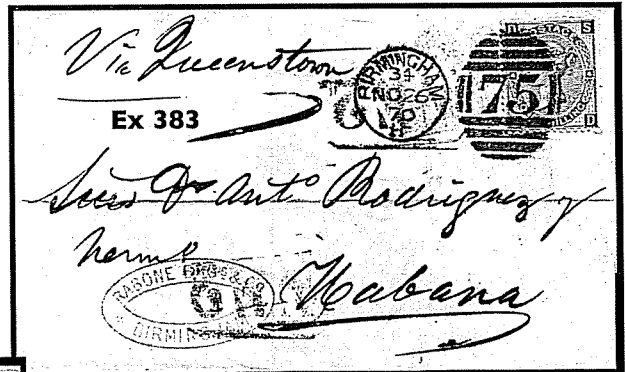 Via Queenstown
BIRMINGHAM
34
NO 26
70
75
Ex 383
D. Anto Rodriguez y
herms
RABONE BROS & Co
BIRMING
1
Habana